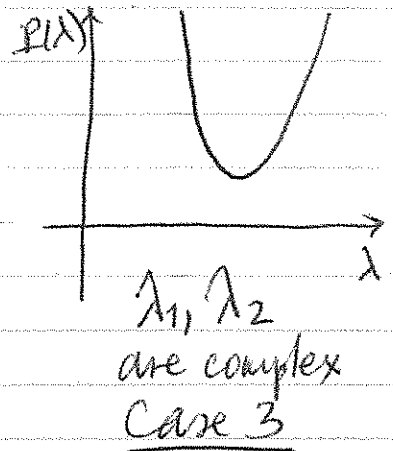 P(λ)
λ
λ1, λ2
are complex
Case 3